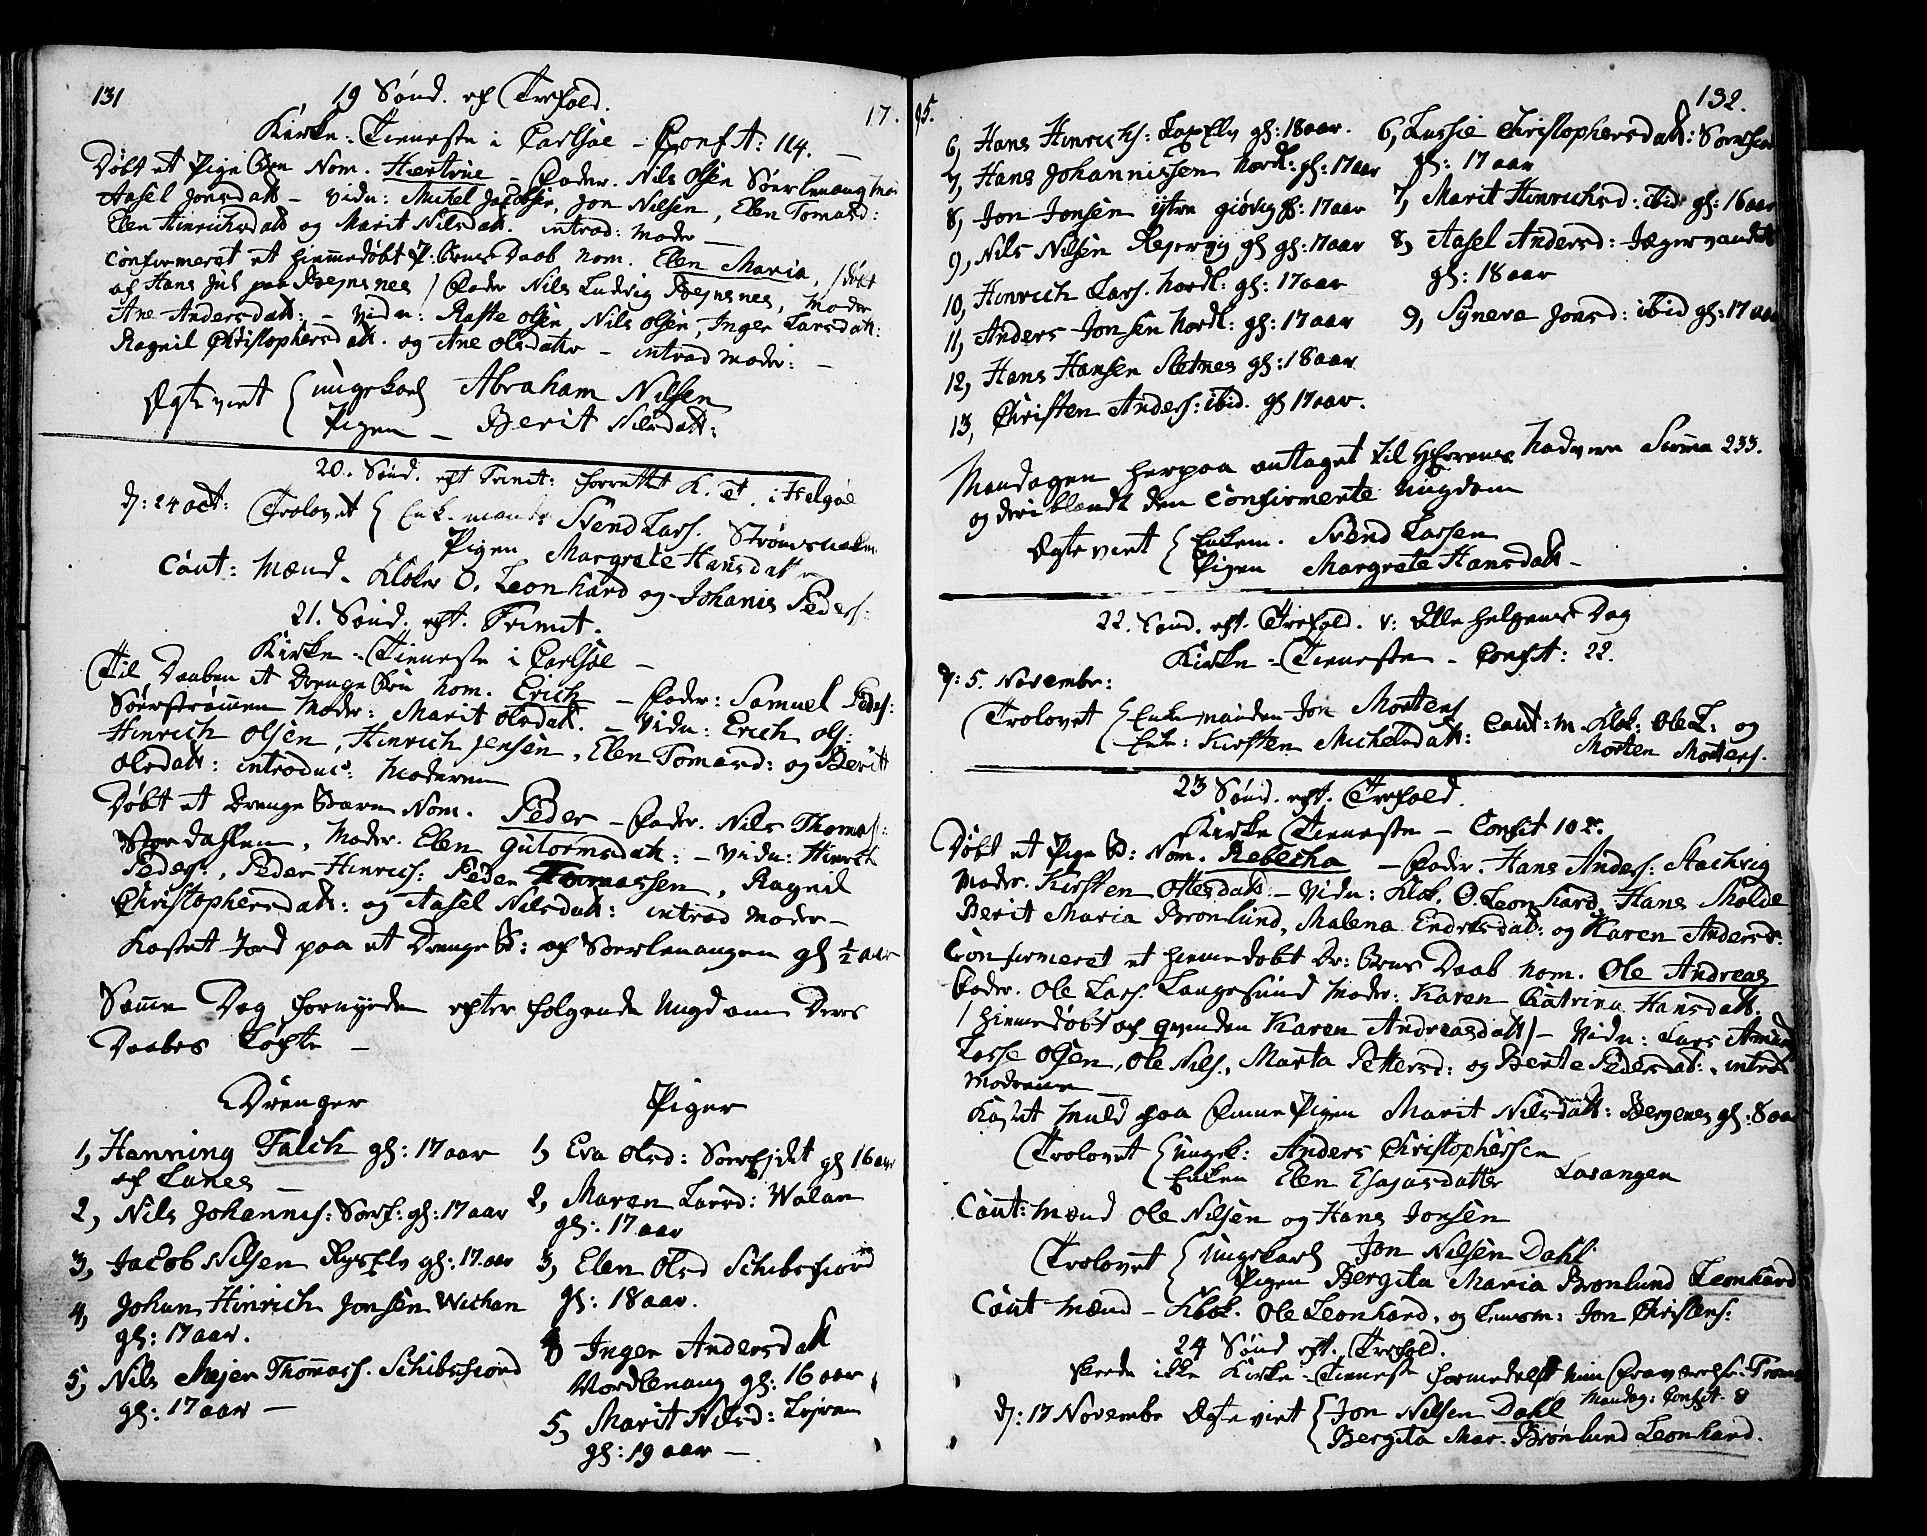 131
19 Sönd. ef Trefold.
17.
Kirke-Tieneste i Carlsöe - Conft: 114. -
Döbt et Pige Bn Nom. Hertrine - Fader. Nils Olsen Söerlenang Mod
Aasel Jonsdatt - vidn: Michel Jacobsen, Jon Nilsen, Elen Tomasd:
Elen Hinrichsdatt og Marit Nilsdatt. introd: Moder -
Confirmeret et hiemmedöbt P: Bens Daab Nom. Elen Maria, /döbt
af Hans Juls paa / Fader Nils Ludvig, Moder
Ane Andersdatt: - vidn: Raste Olsen, Nils Olsen, Inger Larsdatt:
Ragnil Christophersdatt. og Ane Olsdatter - introd Moder: -
Ægteviet { ungekarl Abraham Nilsen
Pigen - Berit Nilsdatt:
20. Sönd. eft Trinit: forrettet K. et. i Helgöe
d: 24 oct: Trolovet { Enke-mand Svend Lars. Strömsholm
Pigen Margrete Hansdatt
Caut: Mænd. Kloker O. Leonhard og Johanis Peders:
21. Sönd. eft. Trinit.
Kirke-Tieneste i Carlsöe -
Til Daaben et Drenge Bn Nom. Erich - Fader: Samuel Peders:
Söerströmen Moder: Marit Olsdatt. - Vidn: Erich Ols:
Hinrich Olsen, Hinrich Jensen, Elen Tomasd: og Berit
Olsdatt: introduc: Moderen
Döbt et Drenge Barn Nom. Peder - Fader. Nils Thomass:
Stordahlen, Moder. Elen Gutormsdatt: - Vidn: Hinrich
Peders:, Peder Hinrics: Peder Tomassen, Ragnil
Christophersdatt: og Aasel Nilsdatt: introd Moder -
Kastet Jord paa et Drenge B: af Söerlenangen gl ½ aar
Samme Dag fornyede efterfölgende Ungdom Deres
Daabes Löfte -
Drenger
1, Henning Falch gl: 17 aar
af Lanes -
2, Nils Johannis: Sörf: gl: 17 aar
3, Jacob Nilsen RysElv gl: 17 aar
4, Johan Hinrich Jonsen Wichan
gl: 17 aar.
5, Nils Mejer Thomass. Schibsfiord
gl: 17 aar -
Piger
1, Eva Olsd: Sörfjdet gl 16 aar
2, Maren Larsd: Walan
gl: 17 aar
3, Elen Olsd Schibsfiord
gl: 18 aar.
4 Inger Andersdatt
Nordlenang gl: 16 aar
5, Marit Nilsd: Lysvan
gl: 19 aar -
95.
132.
6, Hans Hinrichs: LaxElv gl: 18 aar.
7, Hans Johannissen Nordl: gl: 17 aar
8, Jon Jonsen ytre giövig gl: 17 aar
9, Nils Nilsen Repervig gl gl: 17 aar
10, Hinrich Lars. Nordl: gl: 17 aar
11, Anders Jonsen Nordl: gl: 17 aar
12, Hans Hansen Sletnes gl: 18 aar
13, Christen Anders: ibid. gl 17 aar.
6, Lussie Christophersdatt: Sörlsen
gl: 17 aar
7, Marit Hinrichsd: ibid gl: 16 aar
8, Aasel Andersd: Jægervandet
gl: 18 aar
9, Syneva Jonsd: ibid gl: 17 aar
Mandagen herpaa antaget til Herrens Nadvere Suma 233.
og deriblandt den Confirmerte Ungdom
Ægteviet { Enkem. Svend Larsen
Pigen Margrete Hansdatt -
22. Sönd. eft. Trefold. v: Alle helgens Dag
Kirke-Tieneste - Conft: 22.
d: 5. Novembr:
Trolovet { Enkemanden Jon Mortens
Enk: Kirsten Michelsdatt: Caut: M. Klok: Ole L: og
Morten Mortens.
23 Sönd. eft. Trefold.
Kirke Tieneste - Confit 102.
Döbt et Pige B: Nom. Rebecka - Fader. Hans Anders: Stachvig
Moder. Kirsten Ottesdatt - Vidn: Klok. O. Leonhard, Hans Molde
Berit Maria Brönlund, Malena Endresdatt: og Karen Andersd:
Confirmeret et hiemedöbt Dr: Bens Daab Nom. Ole Andreas
Fader. Ole Lars. Langesund Moder: Karen Catrina Hansdatt.
/ hiemedöbt af qvinden Karen Andreasdatt / - Vidn: Lars Amund
Lasse Olsen, Ole Nils., Marta Pettersd: og Berte Pedersdat:, introd
Moderen
Kastet Muld paa Pigen Marit Nilsdatt: Bergenes gl: 8 aar
Trolovet { Ungk: Anders Christophersen
Enken Elen Esajasdatter Lavangen
Caut: Mænd Ole Nilsen og Hans Jonsen
Trolovet { Ungekarl Jon Nilsen Dahl
Pigen Bergita Maria Brönlund Leonhard
Caut Mænd - Klok. Ole Leonhard, og Lensm: Jon Christens:
24 Sönd eft. Trefold.
skeede ikke Kirke-Tieneste formedelst min Fraværelse: Troms
Mandag: Confit. 8
d: 17 Novembr Ægteviet { Jon Nilsen Dahl
Bergita Mar. Brönlund Leonhard.